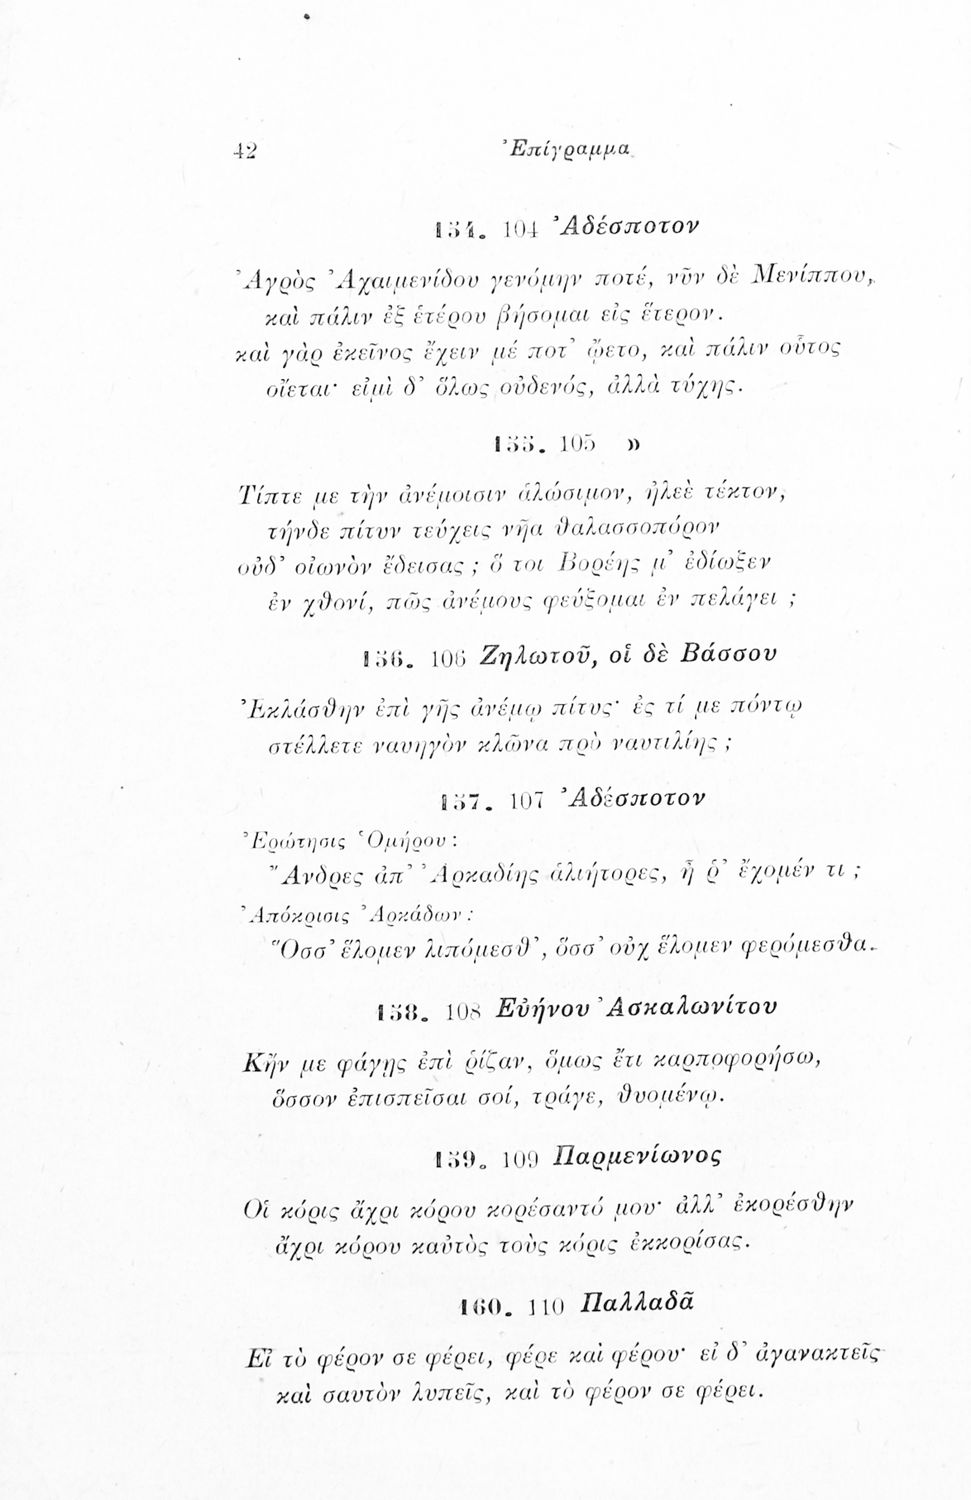 42 Ἐπίγραμμα
154. 104 Ἀδέσποτον
Ἀγρὸς Ἀχαιμενίδου γενόμην ποτέ, νῦν δὲ Μενίππου,
καὶ πάλιν ἐξ ἑτέρου βήσομαι εἰς ἕτερον.
καὶ γὰρ ἐκεῖνος ἔχειν μέ ποτ’ ᾤετο, καὶ πάλιν οὗτος
οἴεται· εἰμὶ δ’ ὅλως οὐδενός, ἀλλὰ τύχης.
155. 105 »
Τίπτε με τὴν ἀνέμοισιν ἁλώσιμον, ἠλεὲ τέκτον,
τήνδε πίτυν τεύχεις νῆα θαλασσοπόρον
οὐδ’ οἰωνὸν ἔδεισας ; ὅ τοι Βορέης μ’ ἐδίωξεν
ἐν χθονί, πῶς ἀνέμους φεύξομαι ἐν πελάγει ;
156. 106 Ζηλωτοῦ, οἱ δὲ Βάσσου
Ἐκλάσθην ἐπὶ γῆς ἀνέμῳ πίτυς· ἐς τί με πόντῳ
στέλλετε ναυηγὸν κλῶνα πρὸ ναυτιλίης ;
157. 107 Ἀδέσποτον
Ἐρώτησις Ὁμήρου :
Ἄνδρες ἀπ’ Ἀρκαδίης ἁλιήτορες, ἦ ῥ’ ἔχομέν τι ;
Ἀπόκρισις Ἀρκάδων :
Ὅσσ’ ἕλομεν λιπόμεσθ’, ὅσσ’ οὐχ ἕλομεν φερόμεσθα.
158. 108 Εὐήνου Ἀσκαλωνίτου
Κἤν με φάγῃς ἐπὶ ῥίζαν, ὅμως ἔτι καρποφορήσω,
ὅσσον ἐπισπεῖσαι σοί, τράγε, θυομένῳ.
159. 109 Παρμενίωνος
Οἱ κόρις ἄχρι κόρου κορέσαντό μου· ἀλλ’ ἐκορέσθην
ἄχρι κόρου καὐτὸς τοὺς κόρις ἐκκορίσας.
160. 110 Παλλαδᾶ
Εἰ τὸ φέρον σε φέρει, φέρε καὶ φέρου· εἰ δ’ ἀγανακτεῖς
καὶ σαυτὸν λυπεῖς, καὶ τὸ φέρον σε φέρει.